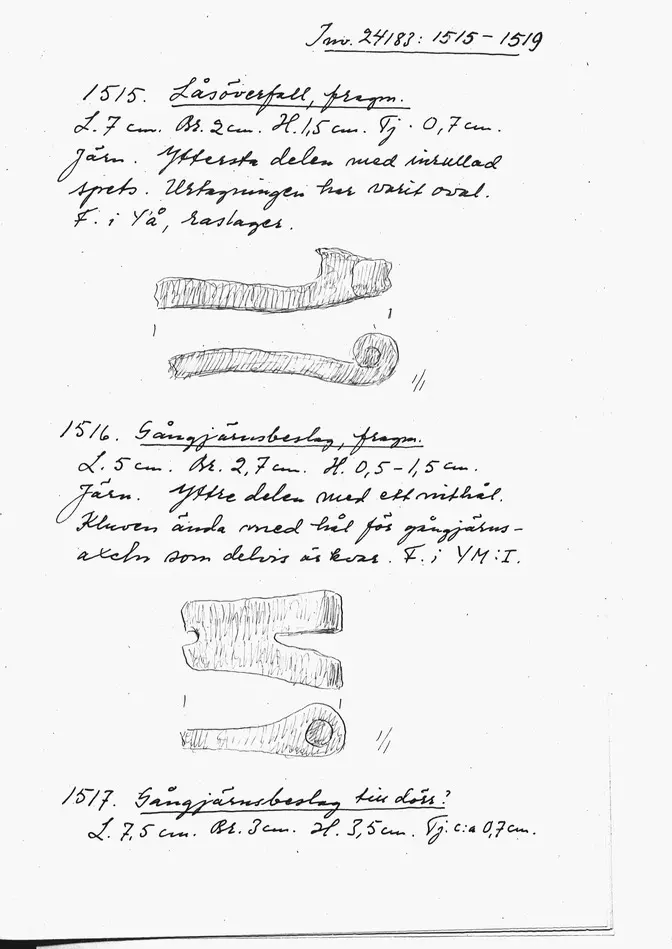 Inv. 24183: 1515 – 1519
1515. Låsöverfall, fragm.
L. 7 cm. Br. 2 cm. H. 1,5 cm. Tj. 0,7 cm.
Järn. Yttersta delen med inrullad
spets. Urtagningen har varit oval.
F. i Yå, raslager.
1/1
1516. Gångjärnsbeslag, fragm.
L. 5 cm. Br. 2,7 cm. H. 0,5 – 1,5 cm.
Järn. Yttre delen med ett nithål.
Kluven ända med hål för gångjärns-
axeln som delvis är kvar. F. i YM:I.
1/1
1517. Gångjärnsbeslag till dörr?
L. 7,5 cm. Br. 3 cm. H. 3,5 cm. Tj. c:a 0,7 cm.